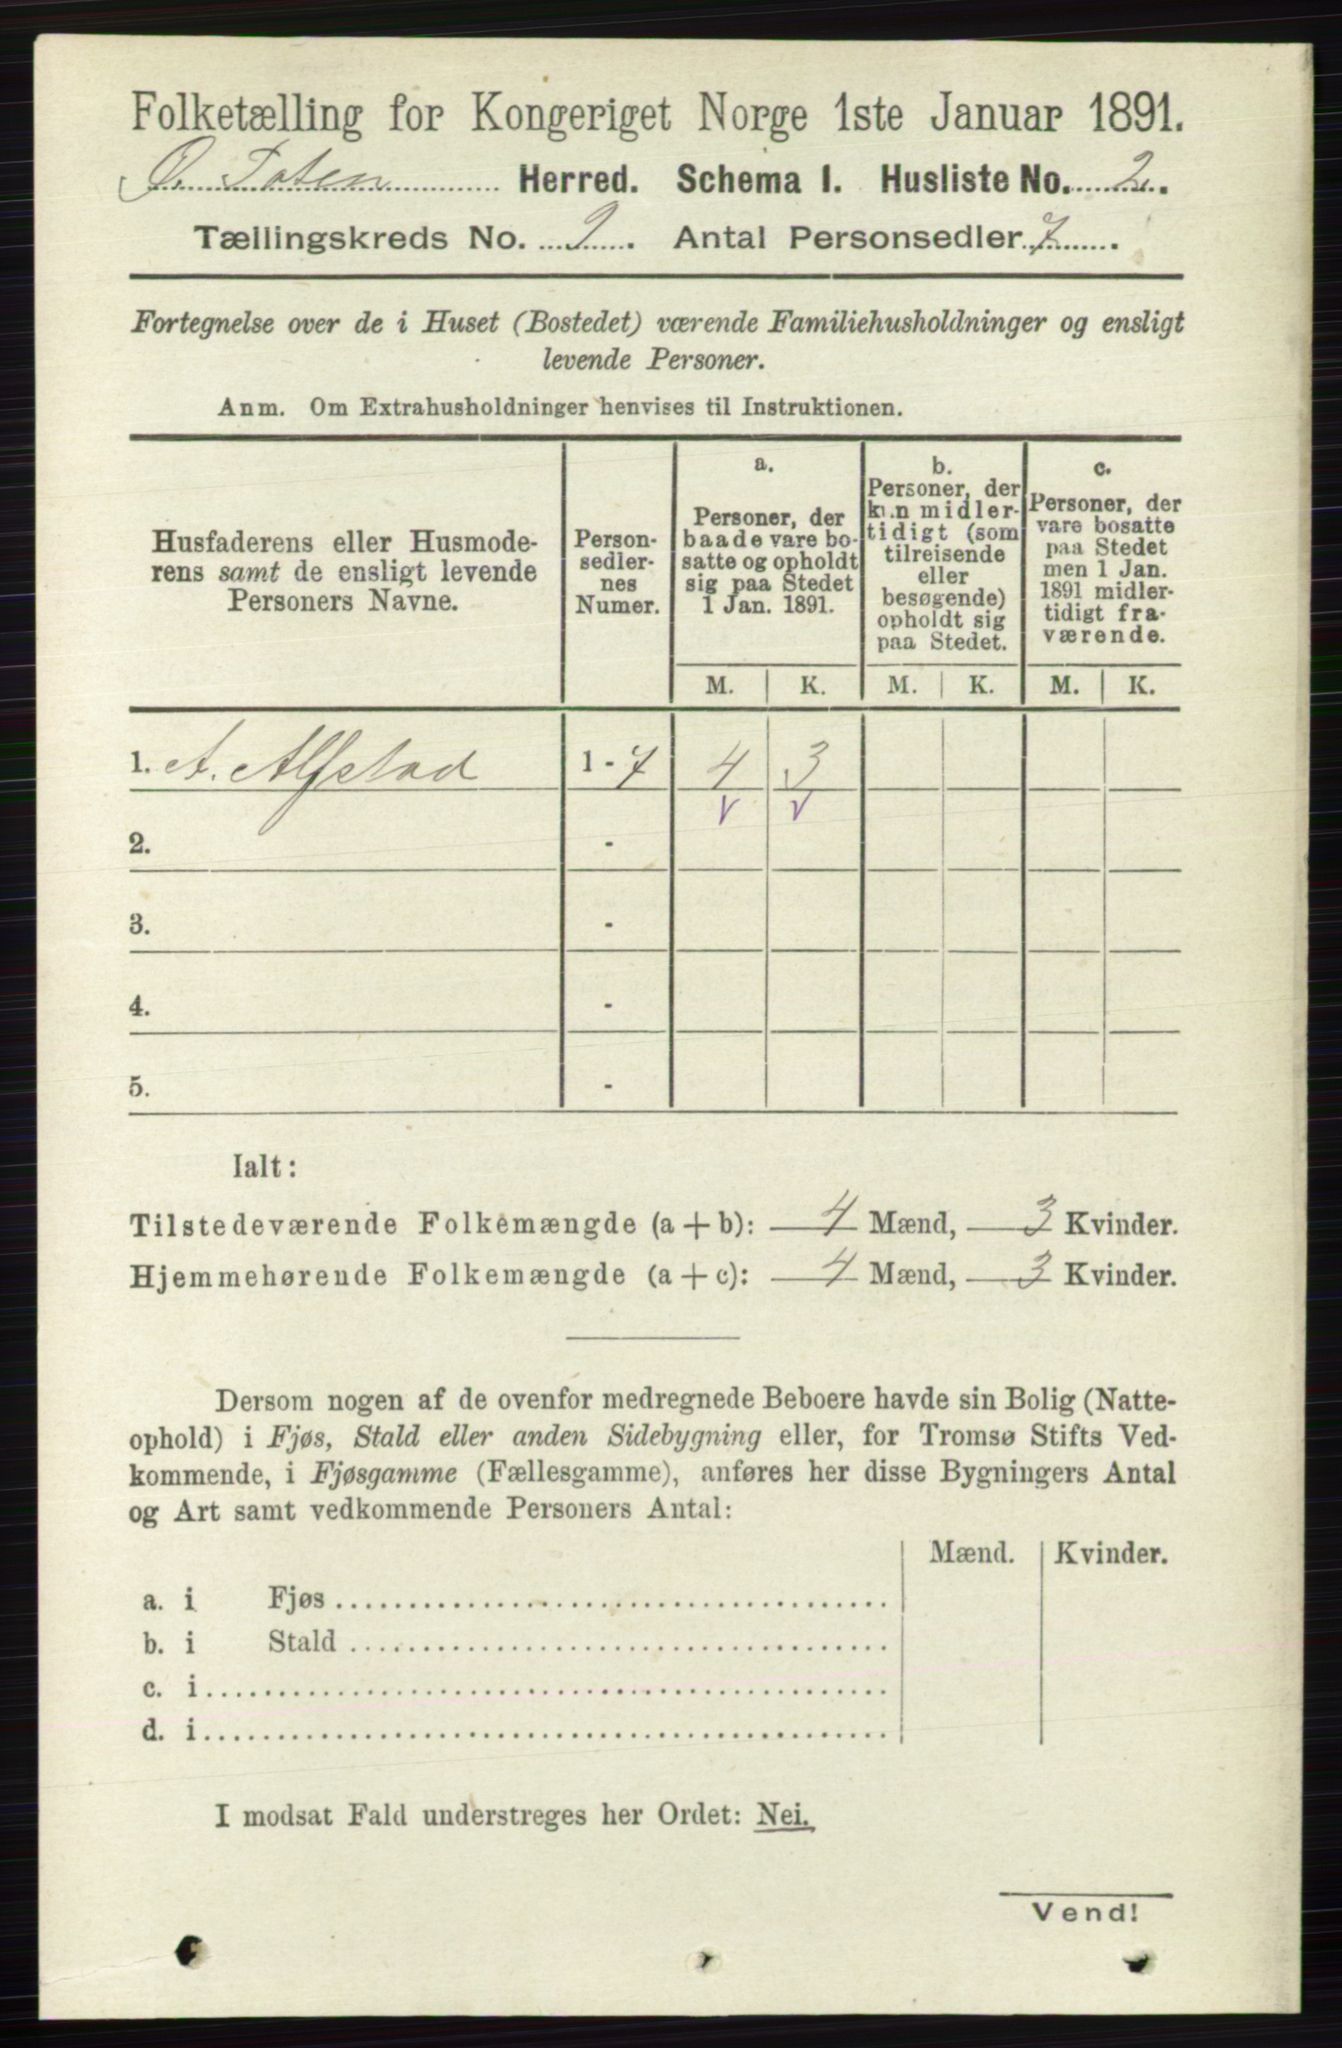 Folketælling for Kongeriget Norge 1ste Januar 1891.
Ø. Toten Herred. Schema I. Husliste No. 2.
Tællingskreds No. 9. Antal Personsedler 7.
Fortegnelse over de i Huset (Bostedet) værende Familiehusholdninger og ensligt
levende Personer.
Anm. Om Extrahusholdninger henvises til Instruktionen.
Husfaderens eller Husmode-
rens samt de ensligt levende
Personers Navne.
Person-
sedler-
nes
Numer.
a.
Personer, der
baade vare bo-
satte og opholdt
sig paa Stedet
1 Jan. 1891.
b.
Personer, der
kun midler-
tidigt (som
tilreisende
eller
besøgende)
opholdt sig
paa Stedet.
c.
Personer, der
vare bosatte
paa Stedet
men 1 Jan.
1891 midler-
tidigt fra-
værende.
M. K. M. K. M. K.
1. A. Alfstad 1 - 7 4 3
v v
2. -
3. -
4. -
5. -
Ialt:
Tilstedeværende Folkemængde (a + b): 4 Mænd, 3 Kvinder.
Hjemmehørende Folkemængde (a + c): 4 Mænd, 3 Kvinder.
Dersom nogen af de ovenfor medregnede Beboere havde sin Bolig (Natte-
ophold) i Fjøs, Stald eller anden Sidebygning eller, for Tromsø Stifts Ved-
kommende, i Fjøsgamme (Fællesgamme), anføres her disse Bygningers Antal
og Art samt vedkommende Personers Antal:
Mænd. Kvinder.
a. i Fjøs
b. i Stald
c. i
d. i
I modsat Fald understreges her Ordet: Nei.
Vend!